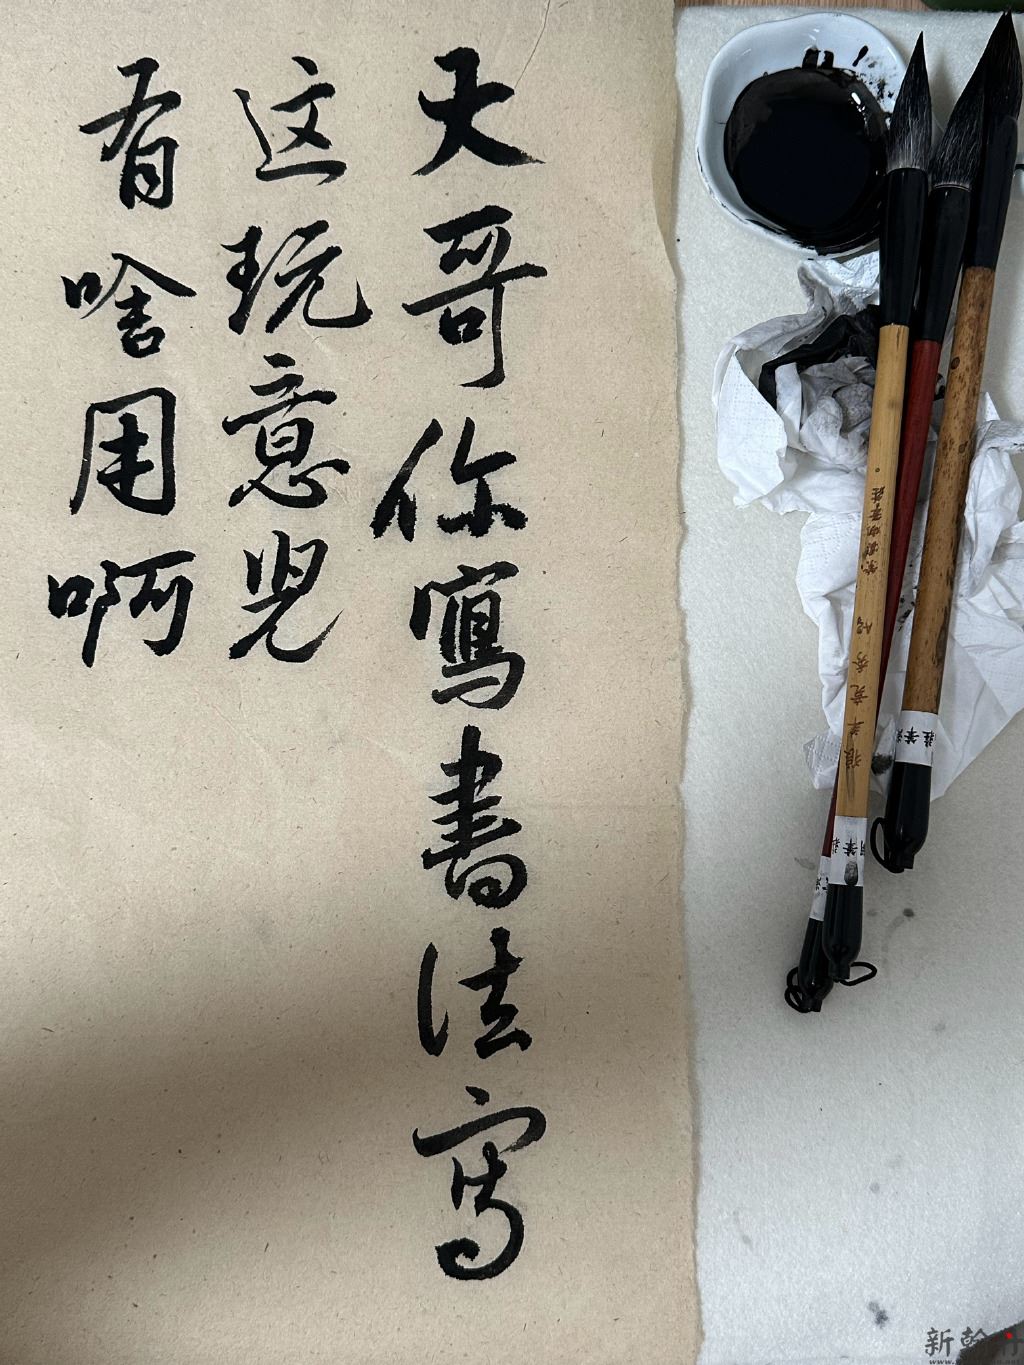 大哥你寫書法写
这玩意兒
有啥用啊
新翰